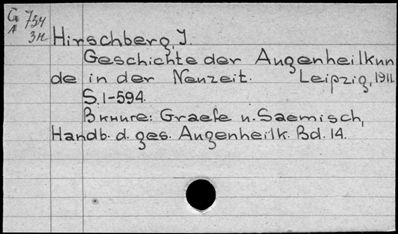 G 754
A 3н
Hirschberg, J.
Geschichte der Augenheilkun
de in der Neuzeit. Leipzig, 1911.
S. 1-594.
В книге: Graefe u. Saemisch,
Handb. d. ges. Augenheilk. Bd. 14.